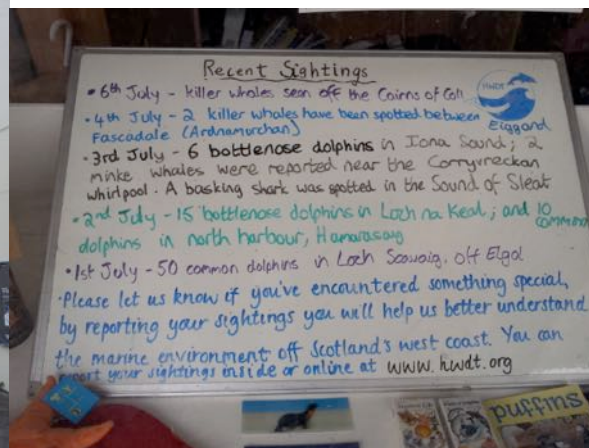 Recent Sightings
HWDT
• 6th July - killer whales seen off the Cairns of Coll
• 4th July - 2 killer whales have been spotted between Eigg and
Fascadale (Ardnamurchan)
• 3rd July - 6 bottlenose dolphins in Iona Sound; 2
minke whales were reported near the Corryvreckan
whirlpool. A basking shark was spotted in the Sound of Sleat
• 2nd July - 15 bottlenose dolphins in Loch na Keal; and 10 common
dolphins in north harbour,
• 1st July - 50 common dolphins in Loch Scavaig, off Elgol
• Please let us know if you've encountered something special,
by reporting your sightings you will help us better understand
the marine environment off Scotland's west coast. You can
report your sightings inside or online at www.hwdt.org
puffins